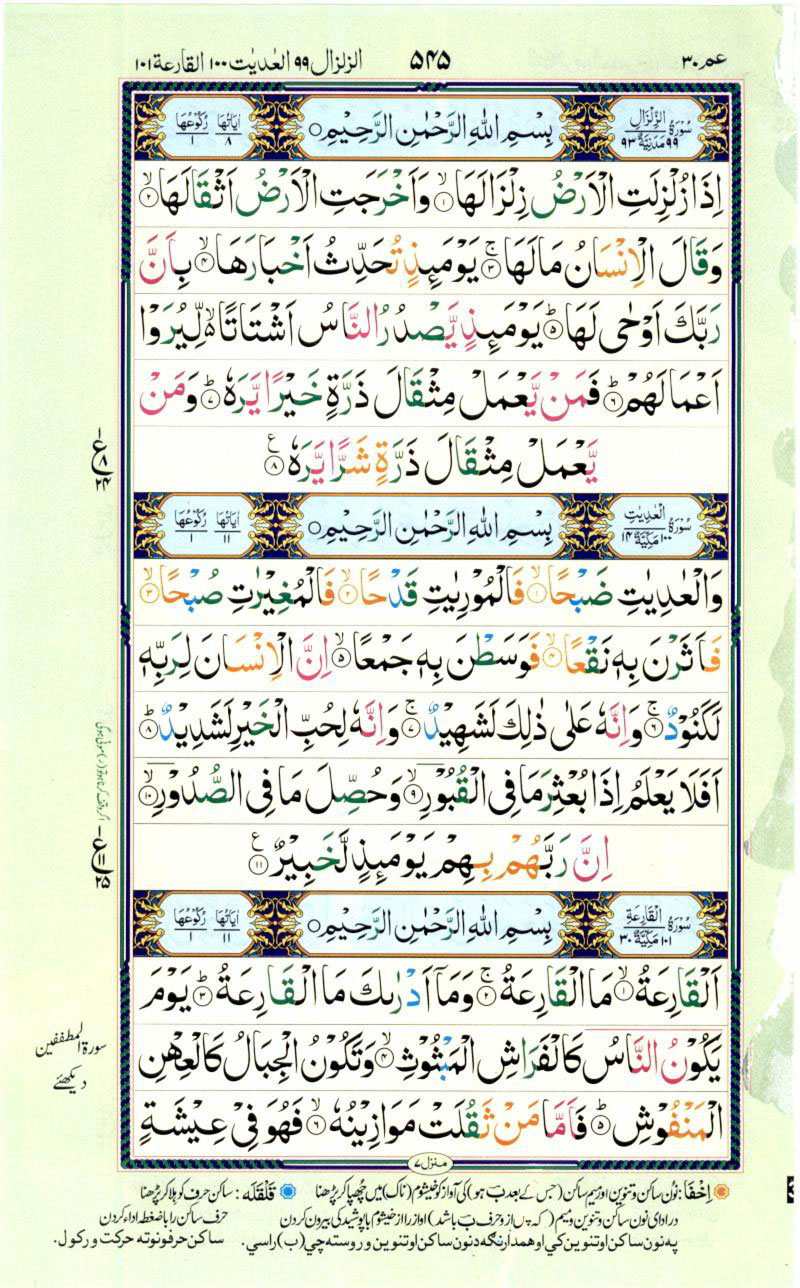 عم ٣٠
٥٤٥
الزلزال ٩٩ العٰديٰت ١٠٠ القارعة ١٠١
سُوْرَةُ الزِّلْزَالِ ٩٩ مَدَنِيَّةٌ ٩٣
بِسْمِ اللّٰهِ الرَّحْمٰنِ الرَّحِيْمِ ○
اٰيَاتُهَا ٨ رُكُوْعُهَا ١
اِذَا زُلْزِلَتِ الْاَرْضُ زِلْزَالَهَا ۙ﴿١﴾ وَاَخْرَجَتِ الْاَرْضُ اَثْقَالَهَا ۙ﴿٢﴾
وَقَالَ الْاِنْسَانُ مَا لَهَا ۚ﴿٣﴾ يَوْمَئِذٍ تُحَدِّثُ اَخْبَارَهَا ۙ﴿٤﴾ بِاَنَّ
رَبَّكَ اَوْحٰى لَهَا ؕ﴿٥﴾ يَوْمَئِذٍ يَّصْدُرُ النَّاسُ اَشْتَاتًا ۙ۬ لِّيُرَوْا
اَعْمَالَهُمْ ؕ﴿٦﴾ فَمَنْ يَّعْمَلْ مِثْقَالَ ذَرَّةٍ خَيْرًا يَّرَهٗ ؕ﴿٧﴾ وَمَنْ
يَّعْمَلْ مِثْقَالَ ذَرَّةٍ شَرًّا يَّرَهٗ ﴿٨﴾ ع
ع ١ ٨ ٢٤
سُوْرَةُ الْعٰدِيٰتِ ١٠٠ مَكِّيَّةٌ ١٤
بِسْمِ اللّٰهِ الرَّحْمٰنِ الرَّحِيْمِ ○
اٰيَاتُهَا ١١ رُكُوْعُهَا ١
وَالْعٰدِيٰتِ ضَبْحًا ۙ﴿١﴾ فَالْمُوْرِيٰتِ قَدْحًا ۙ﴿٢﴾ فَالْمُغِيْرٰتِ صُبْحًا ۙ﴿٣﴾
فَاَثَرْنَ بِهٖ نَقْعًا ۙ﴿٤﴾ فَوَسَطْنَ بِهٖ جَمْعًا ۙ﴿٥﴾ اِنَّ الْاِنْسَانَ لِرَبِّهٖ
لَكَنُوْدٌ ۚ﴿٦﴾ وَاِنَّهٗ عَلٰى ذٰلِكَ لَشَهِيْدٌ ۚ﴿٧﴾ وَاِنَّهٗ لِحُبِّ الْخَيْرِ لَشَدِيْدٌ ؕ﴿٨﴾
اَفَلَا يَعْلَمُ اِذَا بُعْثِرَ مَا فِى الْقُبُوْرِ ۙ﴿٩﴾ وَحُصِّلَ مَا فِى الصُّدُوْرِ ۙ﴿١٠﴾
اِنَّ رَبَّهُمْ بِهِمْ يَوْمَئِذٍ لَّخَبِيْرٌ ﴿١١﴾ ع
ع ١ ١١ ٢٥
سُوْرَةُ الْقَارِعَةِ ١٠١ مَكِّيَّةٌ ٣٠
بِسْمِ اللّٰهِ الرَّحْمٰنِ الرَّحِيْمِ ○
اٰيَاتُهَا ١١ رُكُوْعُهَا ١
اَلْقَارِعَةُ ۙ﴿١﴾ مَا الْقَارِعَةُ ۚ﴿٢﴾ وَمَاۤ اَدْرٰىكَ مَا الْقَارِعَةُ ؕ﴿٣﴾ يَوْمَ
يَكُوْنُ النَّاسُ كَالْفَرَاشِ الْمَبْثُوْثِ ۙ﴿٤﴾ وَتَكُوْنُ الْجِبَالُ كَالْعِهْنِ
الْمَنْفُوْشِ ؕ﴿٥﴾ فَاَمَّا مَنْ ثَقُلَتْ مَوَازِيْنُهٗ ۙ﴿٦﴾ فَهُوَ فِىْ عِيْشَةٍ
سورة المطففين
دیکھئے
منزل ٧
اِخْفَا: نون ساکن و تنوین اور میم ساکن (جس کے بعد ب ہو) کی آواز کو خیشوم (ناک) میں چھپا کر پڑھنا
قَلْقَلَه: ساکن حرف کو ہلا کر پڑھنا
در ادای نون ساکن و تنوین و میم (که پس از و حرف ب باشد) آواز را از خیشوم با پوشیدگی بیرون کردن
حرف ساکن را با ضغطه ادا کردن
په نون ساکن او تنوین کي او همدارنګه د نون ساکن او تنوین وروسته چي (ب) راسي.
ساکن حرفو نو ته حرکت ورکول.